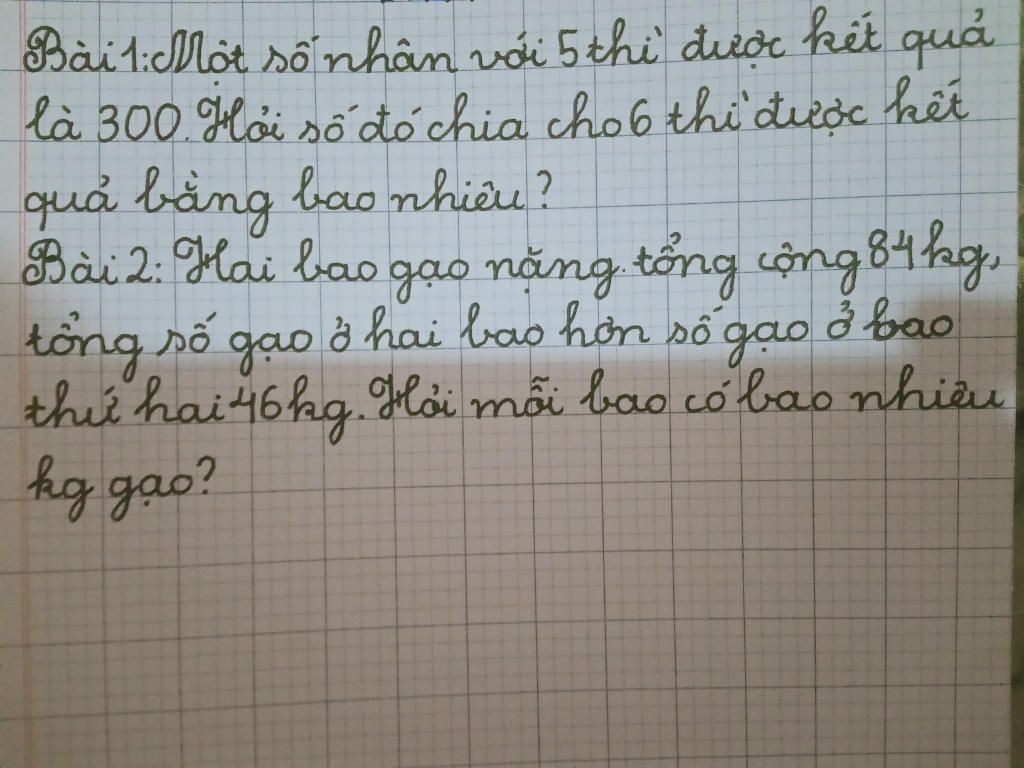 Bài 1: Một số nhân với 5 thì được kết quả
là 300. Hỏi số đó chia cho 6 thì được kết
quả bằng bao nhiêu?
Bài 2: Hai bao gạo nặng tổng cộng 84kg,
tổng số gạo ở hai bao hơn số gạo ở bao
thứ hai 46kg. Hỏi mỗi bao có bao nhiêu
kg gạo?